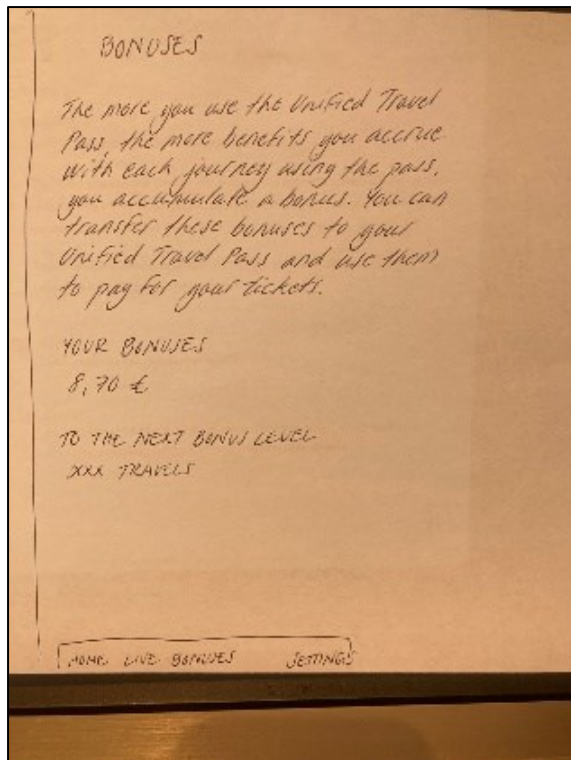 BONUSES
The more you use the Unified Travel
Pass, the more benefits you accrue
with each journey using the pass,
you accumulate a bonus. You can
transfer these bonuses to your
Unified Travel Pass and use them
to pay for your tickets.
YOUR BONUSES
8,70 €
TO THE NEXT BONUS LEVEL
XXX TRAVELS
HOME LIVE BONUSES SETTINGS